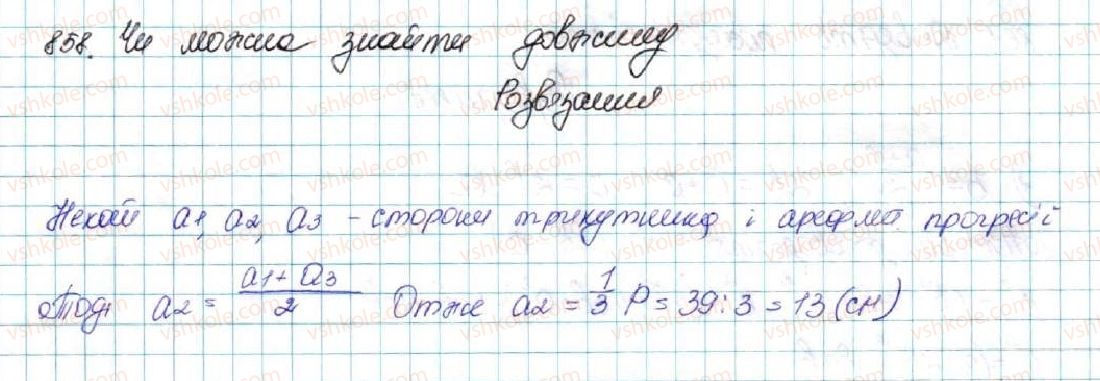 858. Чи можна знайти довжину
Розвязання
Нехай a1, a2, a3 - сторони трикутника і арефма. прогресії
Тоді a2 = (a1 + a3)/2 Отже a2 = 1/3 P = 39 : 3 = 13 (см)